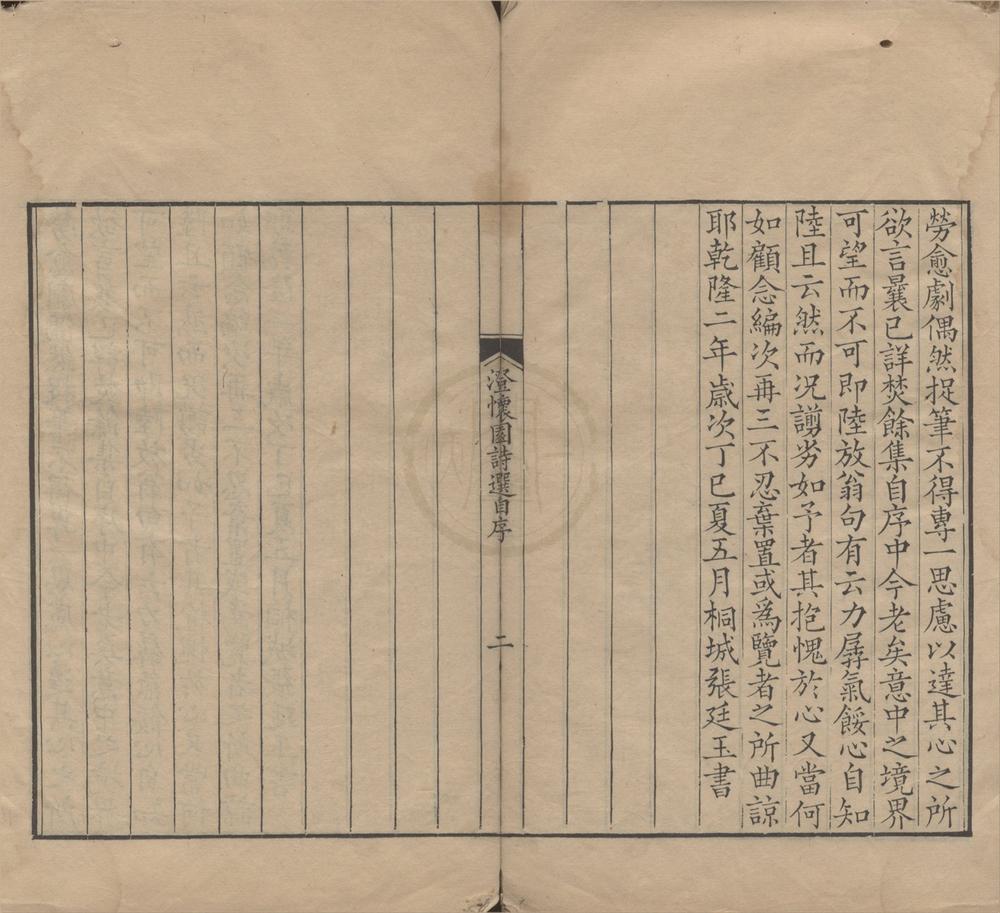 勞愈劇偶然捉筆不得專一思慮以達其心之所
欲言曩已詳焚餘集自序中今老矣意中之境界
可望而不可即陸放翁句有云力孱氣餒心自知
陸且云然而况譾劣如予者其抱愧於心又當何
如顧念編次再三不忍棄置或爲覽者之所曲諒
耶乾隆二年歲次丁巳夏五月桐城張廷玉書
澄懷園詩選自序
二